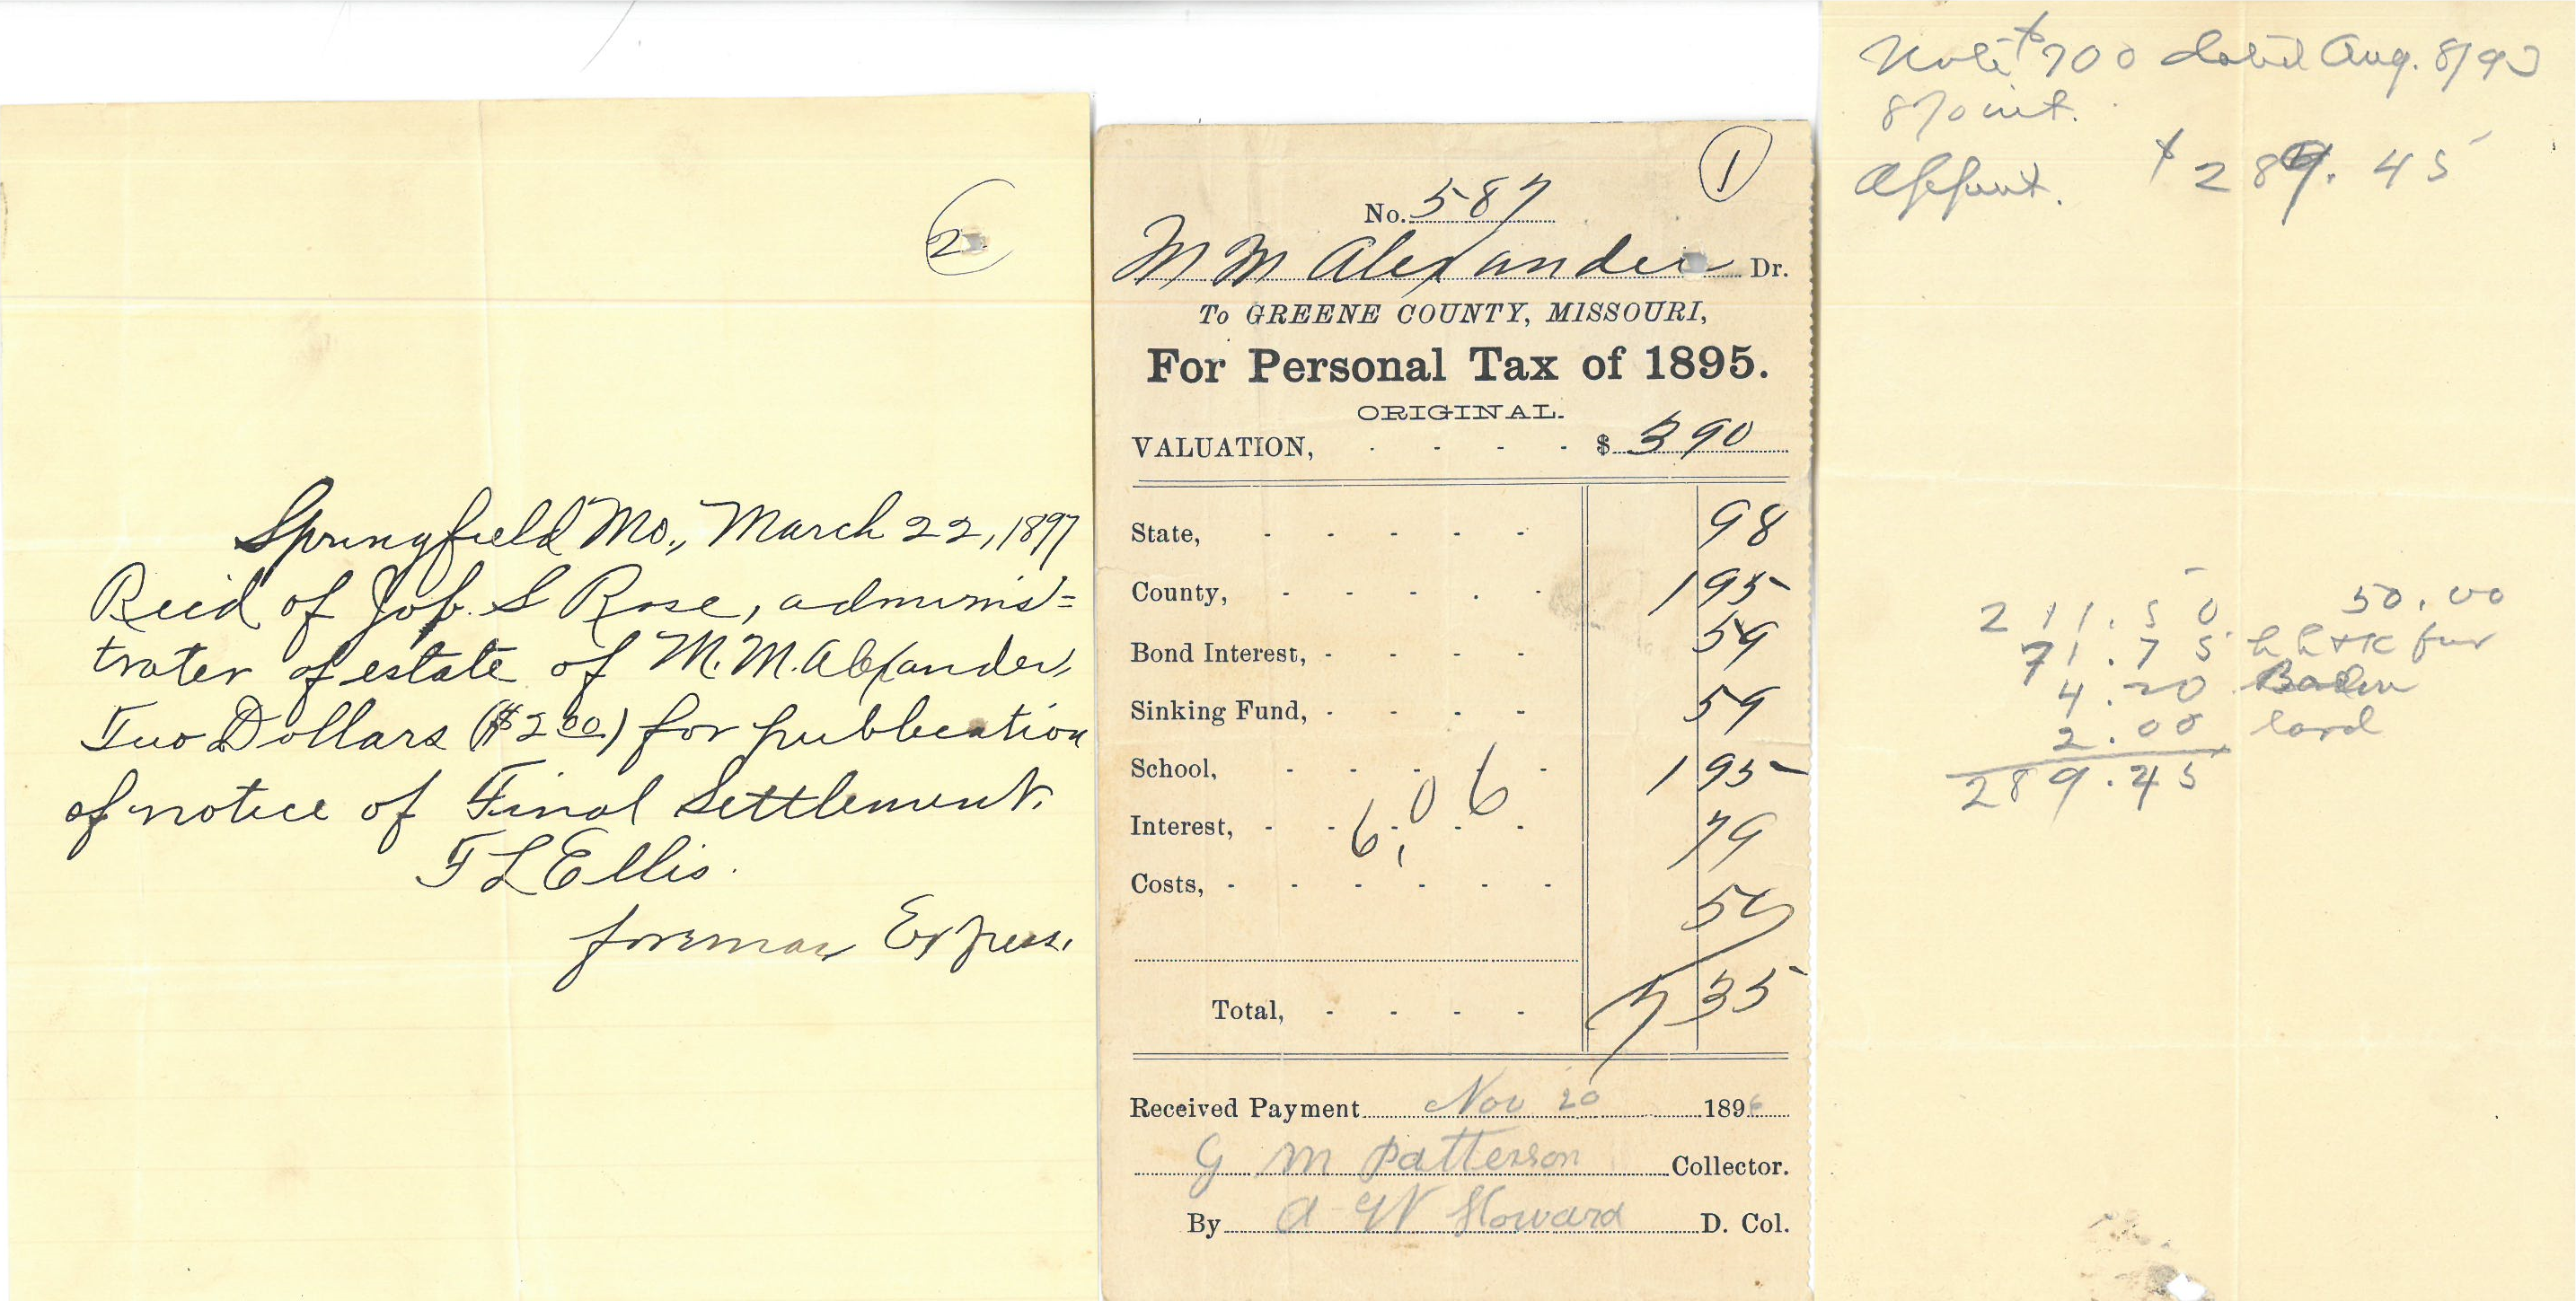 2
Springfield Mo., March 22, 1897
Recd of Jos. S Rose, adminis=
trater of estate of M. M. Alexander,
Two Dollars ($2 00) for publication
of notice of Final Settlement.
F L Ellis.
foreman Express.
1
No. 587
M M Alexander Dr.
To GREENE COUNTY, MISSOURI,
For Personal Tax of 1895.
ORIGINAL.
VALUATION, $ 390
State, 98
County, 1 95
Bond Interest, 59
Sinking Fund, 59
School, 1 95
6,06
Interest, 79
Costs, 50
Total, 7 35
Received Payment Nov 20 1896
G M Patterson Collector.
By A W Howard D. Col.
Note $700 dated Aug. 8/93
8% int.
$289.45
211.50 50.00
71.75 h h & K fur
4.20
2.00 lard
289.45